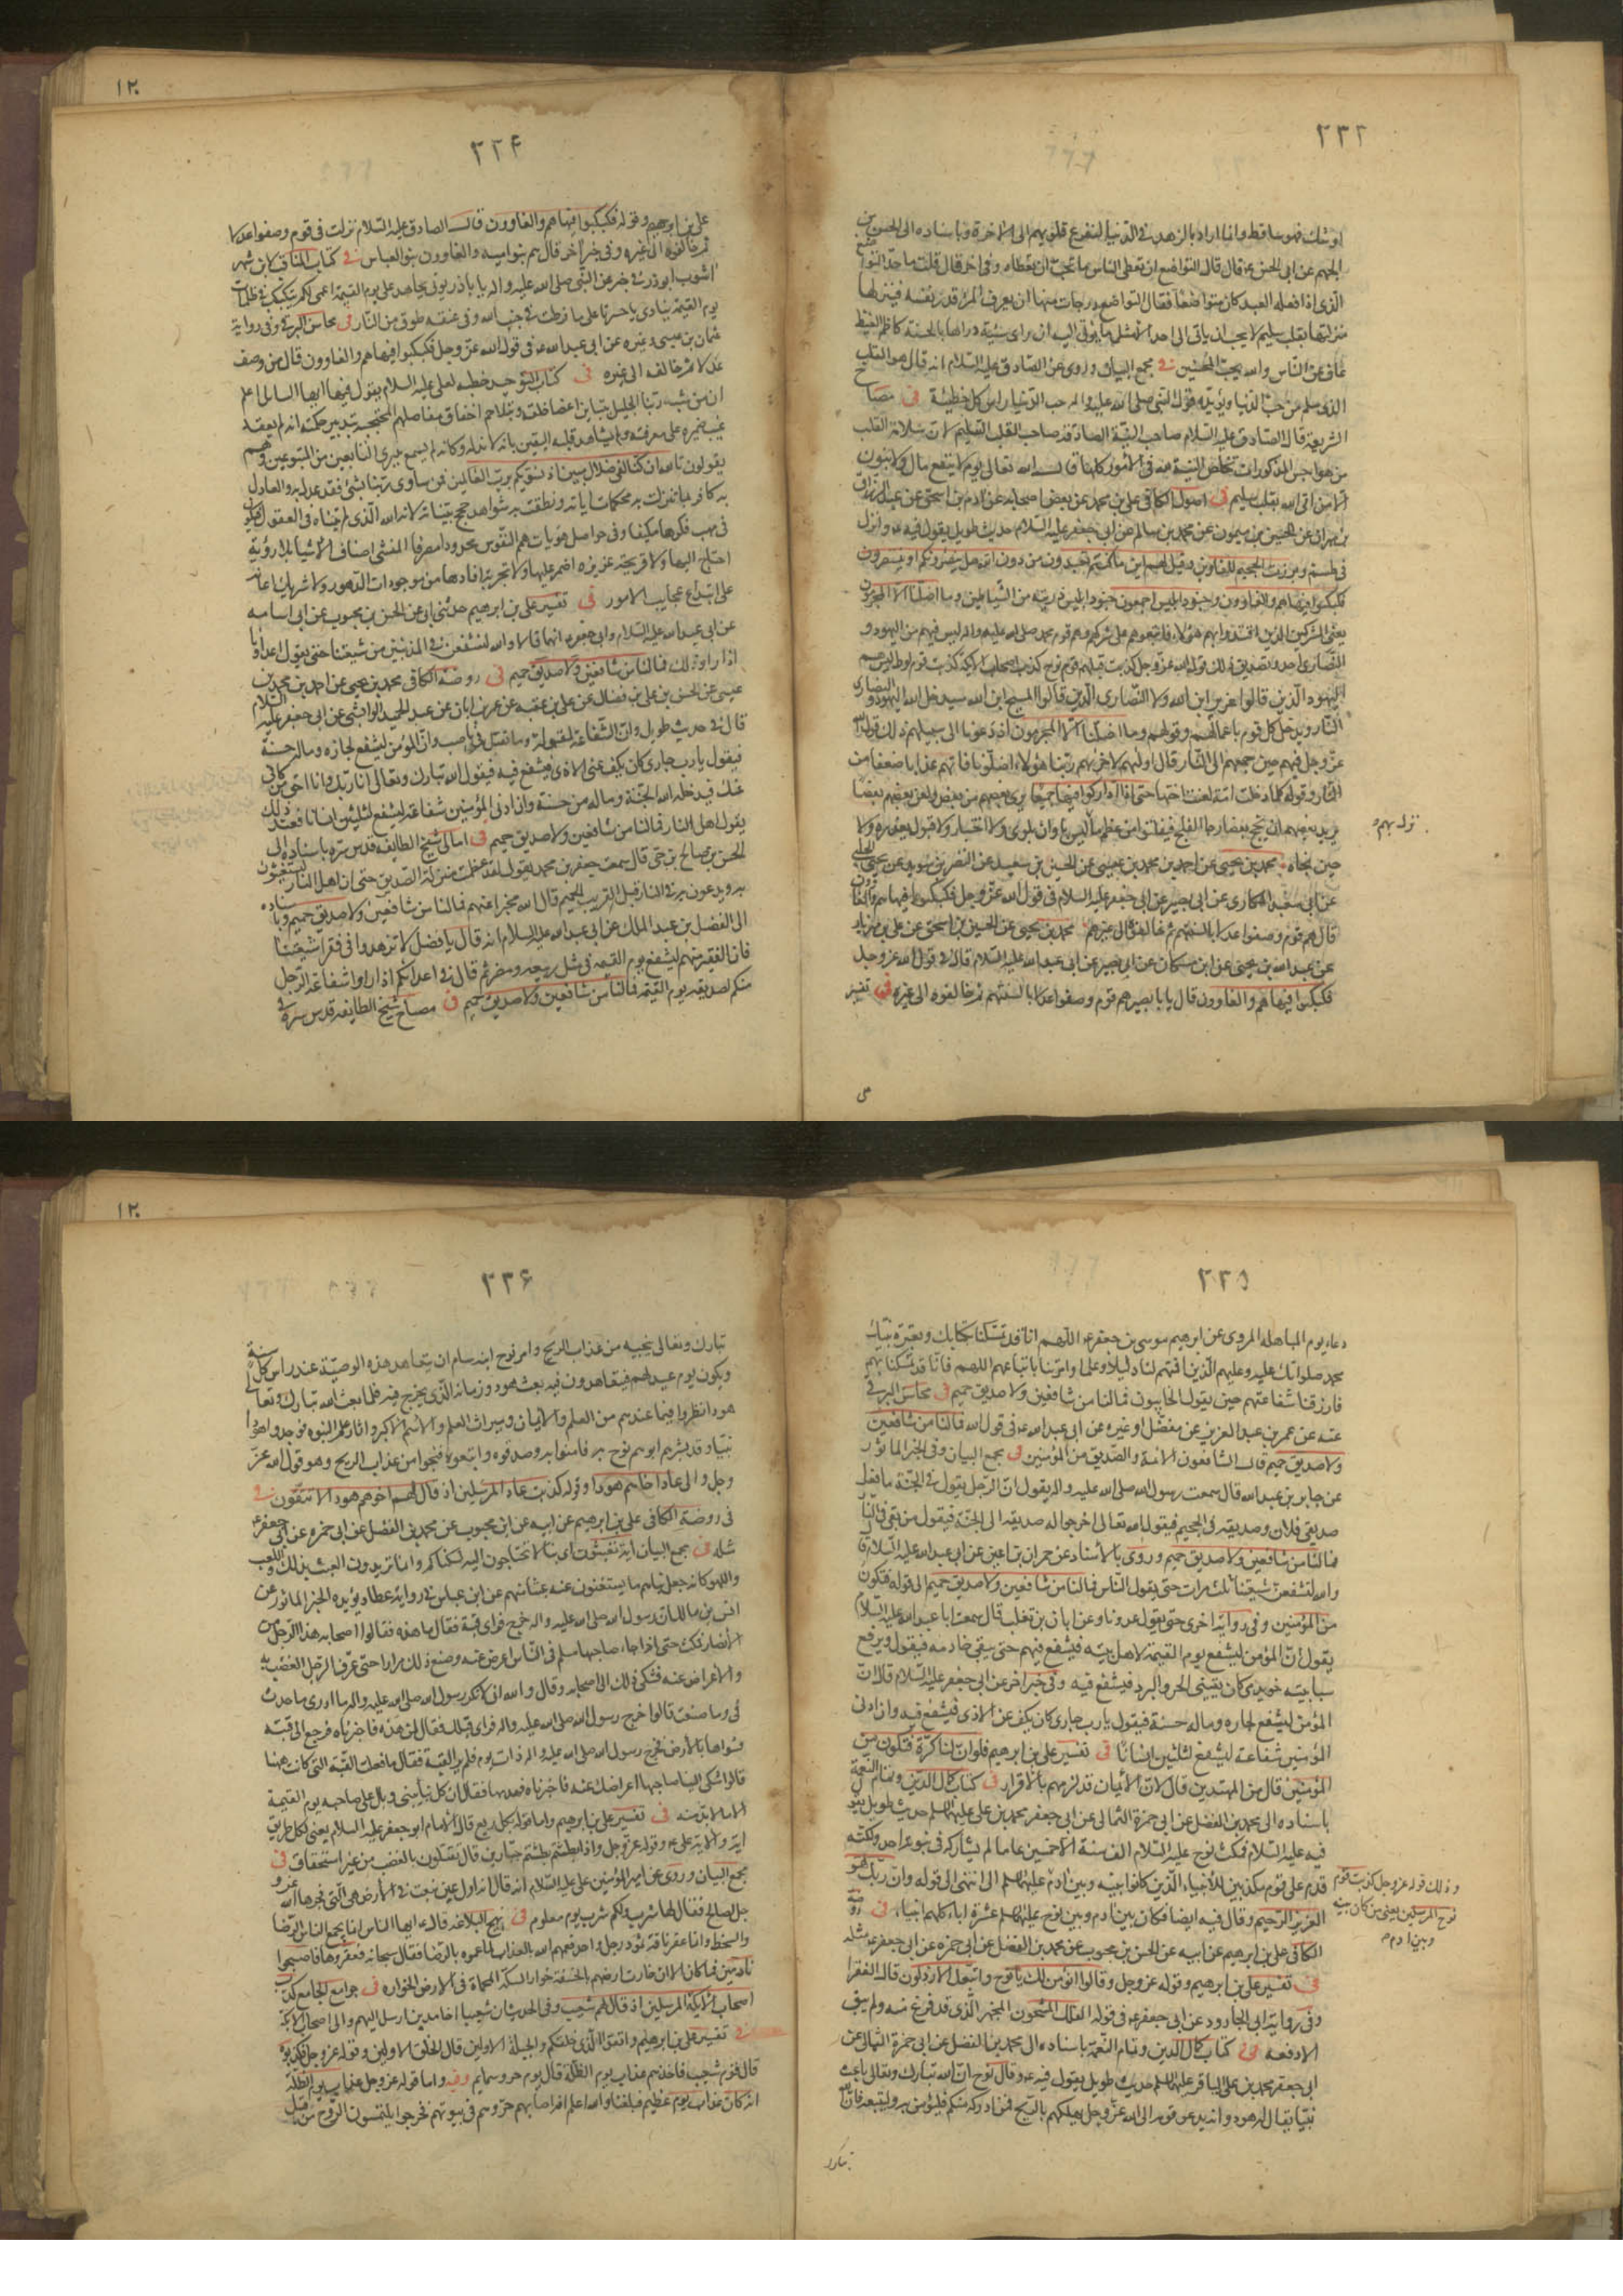 ٢٢٣
او شك فهو ساقط وانما اراد بالزهد فى الدنيا لتفرغ قلوبهم الى الاخرة وباسناده الى الحسن بن
الجهم عن ابى الحسن ع قال قال التواضع ان تعطى الناس ما تحب ان تعطاه وفى اخر قال قلت ما حد التواضع
الذى اذا فعله العبد كان متواضعا فقال التواضع درجات منها ان يعرف المرء قدر نفسه فينزلها
منزلتها بقلب سليم لا يحب ان ياتى الى احد الا مثل ما يوتى اليه ان راى سيئة دراها بالحسنة كاظم الغيظ
عاف عن الناس والله يحب المحسنين فى مجمع البيان وروى عن الصادق عليه السلام انه قال هو القلب
الذى سلم من حب الدنيا ويؤيده قول النبى صلى الله عليه واله حب الدنيا راس كل خطيئة فى مصباح
الشريعة قال الصادق عليه السلام صاحب النية الصادقة صاحب القلب السليم لان سلامة القلب
من هواجس المذكورات تخلص النية لله فى الامور كلها قال الله تعالى يوم لا ينفع مال ولا بنون
الا من اتى الله بقلب سليم فى اصول الكافى على بن محمد عن بعض اصحابه عن ادم بن اسحق عن عبد الرزاق
بن مهران عن الحسين بن ميمون عن محمد بن سالم عن ابى جعفر عليه السلام حديث طويل يقول فيه ع وانزل
فى طسم وبرزت الجحيم للغاوين وقيل لهم اين ما كنتم تعبدون من دون الله هل ينصرونكم او ينتصرون
فكبكبوا فيها هم والغاوون وجنود ابليس اجمعون جنود ابليس ذريته من الشياطين وما اضلنا الا المجرمون
يعنى المشركين الذين اقتدوا بهم هؤلاء فاتبعوهم على شركهم وهم قوم محمد صلى الله عليه واله ليس فيهم من اليهود و
النصارى احد وتصديق ذلك قول الله عز وجل كذبت قبلهم قوم نوح كذب اصحاب الايكة كذبت قوم لوط ليس هم
اليهود الذين قالوا عزير ابن الله ولا النصارى الذين قالوا المسيح ابن الله سيدخل الله اليهود والنصارى
النار ويدخل كل قوم باعمالهم وقولهم وما اضلنا الا المجرمون اذ دعونا الى سبيلهم ذلك قول الله
عز وجل فيهم حين جمعهم الى النار قال اوليهم لاخريهم ربنا هؤلاء اضلونا فاتهم عذابا ضعفا من
النار وقوله كلما دخلت امة لعنت اختها حتى اذا اداركوا فيها جميعا برى بعضهم من بعض ولعن بعضهم بعضا
يريد بعضهم ان يحج بعضا رجا الفلج فيفلتوا من عظيم ما نزل بهم وليس باوان بلوى ولا اختبار ولا قبول معذرة ولا
حين نجاة محمد بن يحيى عن احمد بن محمد بن عيسى عن الحسين بن سعيد عن النضر بن سويد عن يحيى الحلبى
عن ابى سعيد المكارى عن ابى بصير عن ابى جعفر عليه السلام فى قول الله عز وجل فكبكبوا فيها هم والغاوون
قال هم قوم وصفوا عدلا بالسنتهم ثم خالفوه الى غيره محمد بن يحيى عن الحسين بن اسحق عن على بن مهزيار
عن عبد الله بن يحيى عن ابن مسكان عن ابى بصير عن ابى عبد الله عليه السلام قال فى قول الله عز وجل
فكبكبوا فيها هم والغاوون قال يا با بصير هم قوم وصفوا عدلا بالسنتهم ثم خالفوه الى غيره فى تفسير
نزل بهم و
١٢٠
٢٢۴
على بن ابرهيم وقوله فكبكبوا فيها هم والغاوون قال الصادق عليه السلام نزلت فى قوم وصفوا عدلا
ثم خالفوه الى غيره وفى خبر اخر قال هم بنو اميه والغاوون بنو العباس فى كتاب المناقب لابن شهر
اشوب ابو ذر فى خبر عن النبى صلى الله عليه واله يا با ذر يوتى بجاحد على يوم القيمة اعمى ابكم يتكبكب فى ظلمات
يوم القيمة ينادى يا حسرتا على ما فرطت فى جنب الله وفى عنقه طوق من النار فى محاسن البرقى وفى رواية
عثمان بن عيسى وغيره عن ابى عبد الله ع فى قول الله عز وجل فكبكبوا فيها هم والغاوون قال من وصف
عدلا ثم خالفه الى غيره فى كتاب التوحيد خطبه لعلى عليه السلام يقول فيها ايها السائل اعلم
ان من شبه ربنا الجليل بتباين اعضا خلقه وبتلاحم احقاق مفاصلهم المحتجبة بتدبير حكمته انه لم يعقد
غيب ضميره على معرفته ولم يشاهد قلبه اليقين بانه لا ند له وكانه لم يسمع بتبرى التابعين من المتبوعين وهم
يقولون تالله ان كنا لفى ضلال مبين اذ نسويكم برب العالمين فمن ساوى ربنا بشئ فقد عدل به والعادل
به كافر بما تنزلت به محكمات اياته ونطقت به شواهد حجج بيناته لانه الله الذى لم يتناه فى العقول فيكون
فى مهب فكرها مكيفا وفى حواصل هويات همم النفوس محدودا مصرفا المنشى اصناف الاشيا بلا روية
احتاج اليها ولا قريحة غريزه اضمر عليها ولا تجربة افادها من موجودات الدهور ولا شريك اعانه
على ابتداع عجايب الامور فى تفسير على بن ابرهيم حدثنى ابى عن الحسن بن محبوب عن ابى اسامه
عن ابى عبد الله عليه السلام وابى جعفر ع انهما قالا والله لنشفعن فى المذنبين من شيعتنا حتى يقول اعداؤنا
اذا راوا ذلك فما لنا من شافعين ولا صديق حميم فى روضة الكافى محمد بن يحيى عن احمد بن محمد بن
عيسى عن الحسن بن على بن فضال عن على بن عقبه عن عمر بن ابان عن عبد الحميد الوابشى عن ابى جعفر عليه السلام
قال فى حديث طويل وان الشفاعة لمقبولة وما تقبل فى ناصب وان المؤمن ليشفع لجاره وماله حسنة
فيقول يا رب جارى كان يكف عنى الاذى فيشفع فيه فيقول الله تبارك وتعالى انا ربك وانا احق من كافى
عنك فيدخله الله الجنة وماله من حسنة وان ادنى المؤمنين شفاعة ليشفع لثلثين انسانا فعند ذلك
يقول اهل النار فما لنا من شافعين ولا صديق حميم فى امالى شيخ الطايفه قدس سره باسناده الى
الحسن بن صالح بن حى قال سمعت جعفر بن محمد يقول لقد عظمت منزلة الصديق حتى ان اهل النار ليستغيثون
به ويدعون به فى النار قبل القريب الحميم قال الله مخبرا عنهم فما لنا من شافعين ولا صديق حميم وباسناده
الى الفضل بن عبد الملك عن ابى عبد الله عليه السلام انه قال يا فضل لا تزهدوا فى فقراء شيعتنا
فان الفقير منهم ليشفع يوم القيمه فى مثل ربيعه ومضر ثم قال فى اعدائكم اذا راوا شفاعة الرجل
منكم لصديقه يوم القيمة فما لنا من شافعين ولا صديق حميم فى مصباح شيخ الطايفه قدس سره فى
٢٢٥
دعاء يوم المباهله المروى عن ابرهيم موسى بن جعفر ع اللهم انا قد تمسكنا بكتابك وبعترة نبيك
محمد صلواتك عليه وعليهم الذين اقمتهم لنا دليلا وعلما وامرتنا باتباعهم اللهم فانا قد تمسكنا بهم
فارزقنا شفاعتهم حين يقول الخايبون فما لنا من شافعين ولا صديق حميم فى محاسن البرقى
عنه عن عمر بن عبد العزيز عن مفضل او غيره عن ابى عبد الله ع فى قول الله فما لنا من شافعين
ولا صديق حميم قال الشافعون الائمة والصديق من المؤمنين فى مجمع البيان وفى الخبر الماثور
عن جابر بن عبد الله قال سمعت رسول الله صلى الله عليه واله يقول ان الرجل يقول فى الجنة ما فعل
صديقى فلان وصديقه فى الجحيم فيقول الله تعالى اخرجوا له صديقه الى الجنة فيقول من بقى فى النار
فما لنا من شافعين ولا صديق حميم وروى بالاسناد عن حمران بن اعين عن ابى عبد الله عليه السلام قال
والله لنشفعن شيعتنا ثلث مرات حتى يقول الناس فما لنا من شافعين ولا صديق حميم الى قوله فنكون
من المؤمنين وفى رواية اخرى حتى يقول عدونا وعن ابان بن تغلب قال سمعت ابا عبد الله عليه السلام
يقول ان المؤمن ليشفع يوم القيمة لاهل بيته فيشفع فيهم حتى يبقى خادمه فيقول ويرفع
سبابتيه خويدمى كان يقينى الحر والبرد فيشفع فيه وفى خبر اخر عن ابى جعفر عليه السلام قال ان
المؤمن ليشفع لجاره وماله حسنة فيقول يا رب جارى كان يكف عنى الاذى فيشفع فيه وان ادنى
المؤمنين شفاعة ليشفع لثلثين انسانا فى تفسير على بن ابرهيم فلو ان لنا كرة فنكون من
المؤمنين قال من المهتدين قال لان الايمان قد لزمهم بالاقرار فى كتاب كمال الدين وتمام النعمة
باسناده الى محمد بن الفضل عن ابى حمزة الثمالى عن ابى جعفر محمد بن على عليهما السلم حديث طويل يقول
فيه عليه السلام فمكث نوح عليه السلام الف سنة الا خمسين عاما لم يشاركه فى نبوته احد ولكنه
قدم على قوم مكذبين للانبياء الذين كانوا بينه وبين ادم عليهما السلم الى ان انتهى الى قوله وان ربك لهو
العزيز الرحيم وقال فيه ايضا فكان بين ادم وبين نوح عليهما السلم عشرة اباء كلهم انبياء فى روضة
الكافى على بن ابرهيم عن ابيه عن الحسن بن محبوب عن محمد بن الفضل عن ابى حمزه عن ابى جعفر ع مثله
فى تفسير على بن ابرهيم وقوله عز وجل وقالوا انؤمن لك يا نوح واتبعك الارذلون قال الفقرا
وفى رواية ابى الجارود عن ابى جعفر ع فى قوله الفلك المشحون المجهز الذى قد فرغ منه ولم يبق
الا دفعه فى كتاب كمال الدين وتمام النعمة باسناده الى محمد بن الفضل عن ابى حمزة الثمالى عن
ابى جعفر محمد بن على الباقر عليهما السلم حديث طويل يقول فيه ع وقال نوح ان الله تبارك وتعالى باعث
نبيا يقال له هود وانه يدعو قومه الى الله عز وجل فيهلكهم بالريح فمن ادركه منكم فليؤمن به وليتبعه فان الله
وذلك قوله عز وجل كذبت قوم
نوح المرسلين يعنى من كان بينه
وبين ادم
تبارك
١٢٠
٢٢۶
تبارك وتعالى ينجيه من عذاب الريح وامر نوح ابنه سام ان يتعاهد هذه الوصية عند راس كل سنة
ويكون يوم عيد لهم فيتعاهدون فيه بعث هود وزمانه الذى يخرج فيه فلما بعث الله تبارك وتعالى
هودا نظروا فيما عندهم من العلم والايمان وميراث العلم والاسم الاكبر واثار علم النبوه فوجدوا هودا
نبيا وقد بشرهم ابوهم نوح به فامنوا به وصدقوه واتبعوه فنجوا من عذاب الريح وهو قول الله عز
وجل والى عاد اخاهم هودا وقوله كذبت عاد المرسلين اذ قال لهم اخوهم هود الا تتقون فى
فى روضة الكافى على بن ابرهيم عن ابيه عن ابن محبوب عن محمد بن الفضل عن ابى حمزه عن ابى جعفر ع
مثله فى مجمع البيان اية تعبثون اى بنا لا تحتاجون اليه لسكناكم وانما تريدون العبث بذلك واللعب
واللهو كانه جعل بناءهم ما يستغنون عنه عبثا منهم عن ابن عباس فى رواية عطا ويؤيده الخبر الماثور عن
انس بن مالك ان رسول الله صلى الله عليه واله خرج فراى قبة فقال ما هذه فقالوا اصحابه هذا لرجل من
الانصار فمكث حتى اذا جاء صاحبها سلم فى الناس اعرض عنه وصنع ذلك مرارا حتى عرف الرجل الغضب به
والاعراض عنه فشكى ذلك الى اصحابه وقال والله انى لانكر رسول الله صلى الله عليه واله ما ادرى ما حدث
فى وما صنعت قالوا خرج رسول الله صلى الله عليه واله فراى قبتك فقال لمن هذه فاخبرناه فرجع الى قبته
فسواها بالارض فخرج رسول الله صلى الله عليه واله ذات يوم فلم ير القبة فقال ما فعلت القبة التى كانت هيهنا
قالوا شكى الينا صاحبها اعراضك عنه فاخبرناه فهدمها فقال ان كل بناء يبنى وبال على صاحبه يوم القيمة
الا ما لا بد منه فى تفسير على بن ابرهيم واما قوله بكل ريع قال الامام ابو جعفر عليه السلام يعنى لكل طريق
اية والاية على ع وقوله عز وجل واذا بطشتم بطشتم جبارين قال تقتلون بالغضب من غير استحقاق فى
مجمع البيان وروى عن امير المؤمنين على عليه السلام انه قال انه اول عين نبعت فى الارض هى التى فجرها الله عز و
جل لصالح فقال لها شرب ولكم شرب يوم معلوم فى نهج البلاغه قال ع ايها الناس انما يجمع الناس الرضا
والسخط وانما عقر ناقة ثمود رجل واحد فعمهم الله بالعذاب لما عموه بالرضا فقال سبحانه فعقروها فاصبحوا
نادمين فما كان الا ان خارت ارضهم بالخسفة خوار السكة المحماة فى الارض الخواره فى جوامع الجامع كذب
اصحاب الايكة المرسلين اذ قال لهم شعيب وفى الحديث ان شعيبا اخا مدين ارسل اليهم والى اصحاب الايكة
فى تفسير على بن ابرهيم واتقوا الذى خلقكم والجبلة الاولين قال الخلق الاولين وقوله عز وجل فكذبوه
قال قوم شعيب فاخذهم عذاب يوم الظلة قال يوم حر وسمايم وفيه واما قوله عز وجل عذاب يوم الظلة
انه كان عذاب يوم عظيم فبلغنا والله اعلم انه اصابهم حر وهم فى بيوتهم فخرجوا يلتمسون الروح من قبل